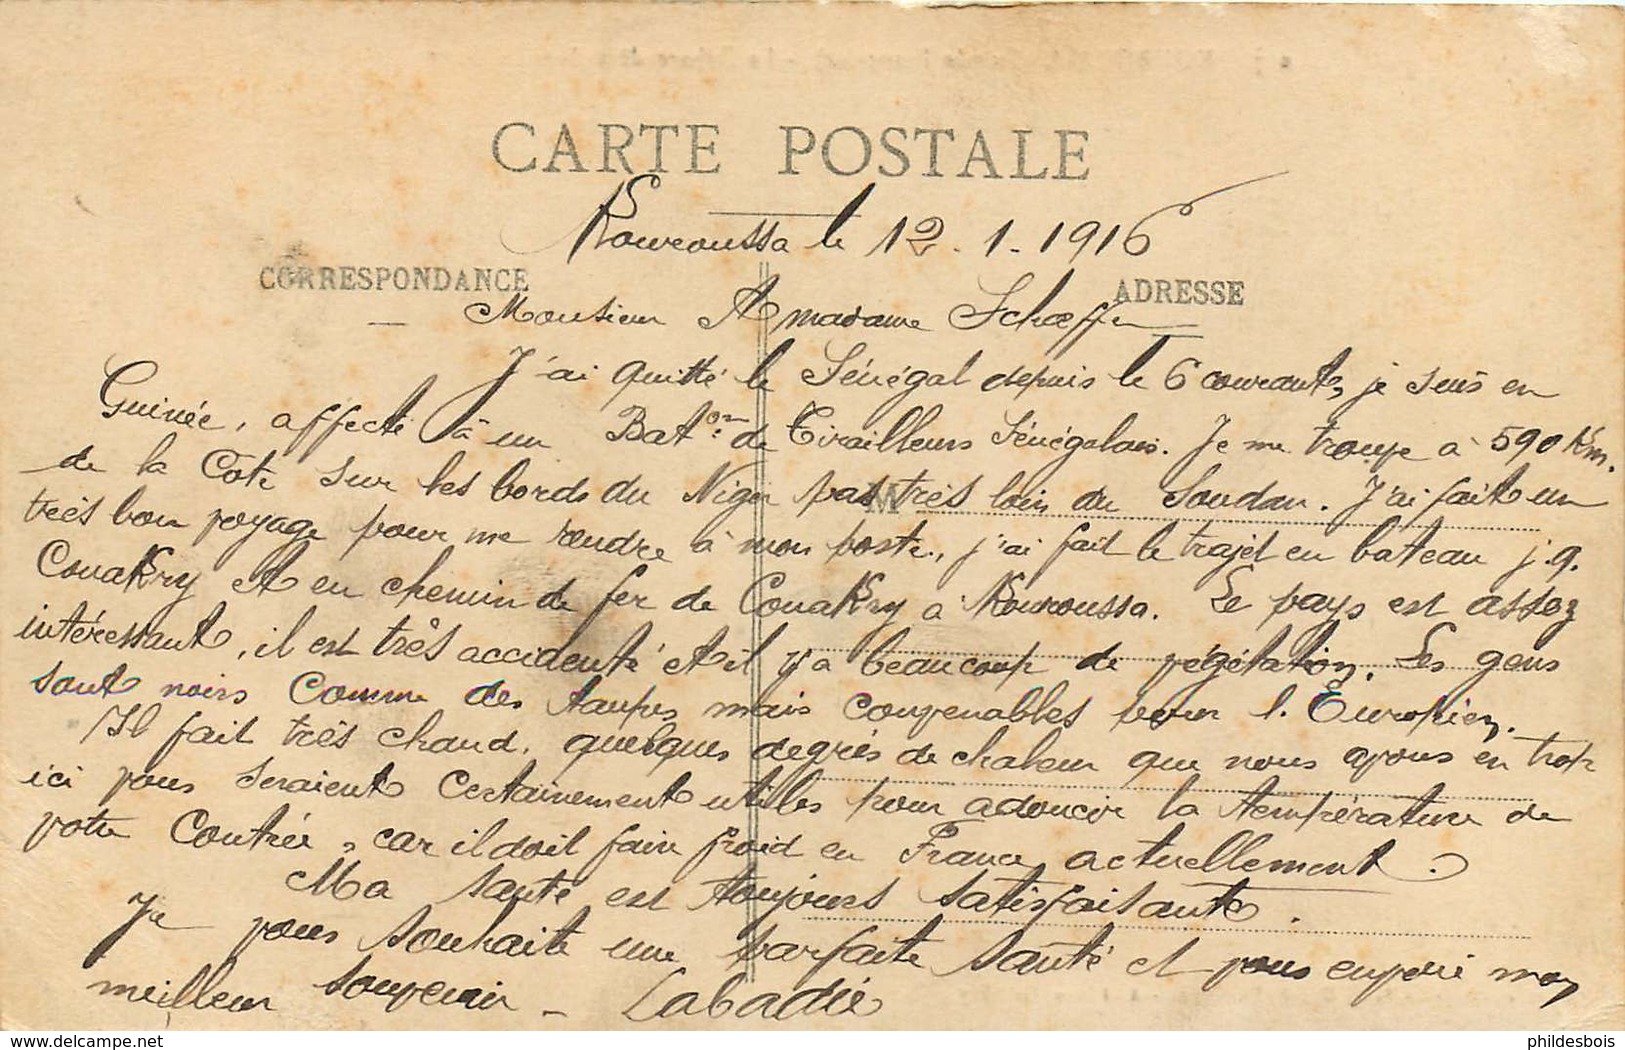 CARTE POSTALE
Kouroussa le 12.1.1916
CORRESPONDANCE
ADRESSE
Monsieur et madame Schœffer
J'ai quitté le Sénégal depuis le 6 courant, je suis en
Guinée, affecté à un Bat.on de Tirailleurs Sénégalais. Je me trouve à 590 Km.
de la Côte sur les bords du Niger pas très loin du Soudan. J'ai fait un
M
très bon voyage pour me rendre à mon poste, j'ai fait le trajet en bateau j.q.
Conakry et en chemin de fer de Conakry à Kouroussa. Le pays est assez
intéressant, il est très accidenté et il y a beaucoup de végétation. Les gens
sont noirs comme des taupes mais convenables pour l'Européen.
Il fait très chaud, quelques degrés de chaleur que nous avons en trop
ici vous seraient certainement utiles pour adoucir la température de
votre Contrée, car il doit faire froid en France actuellement.
Ma santé est toujours satisfaisante.
Je vous souhaite une parfaite santé et vous envoie mon
meilleur souvenir - Labadie
delcampe.net
phildesbois